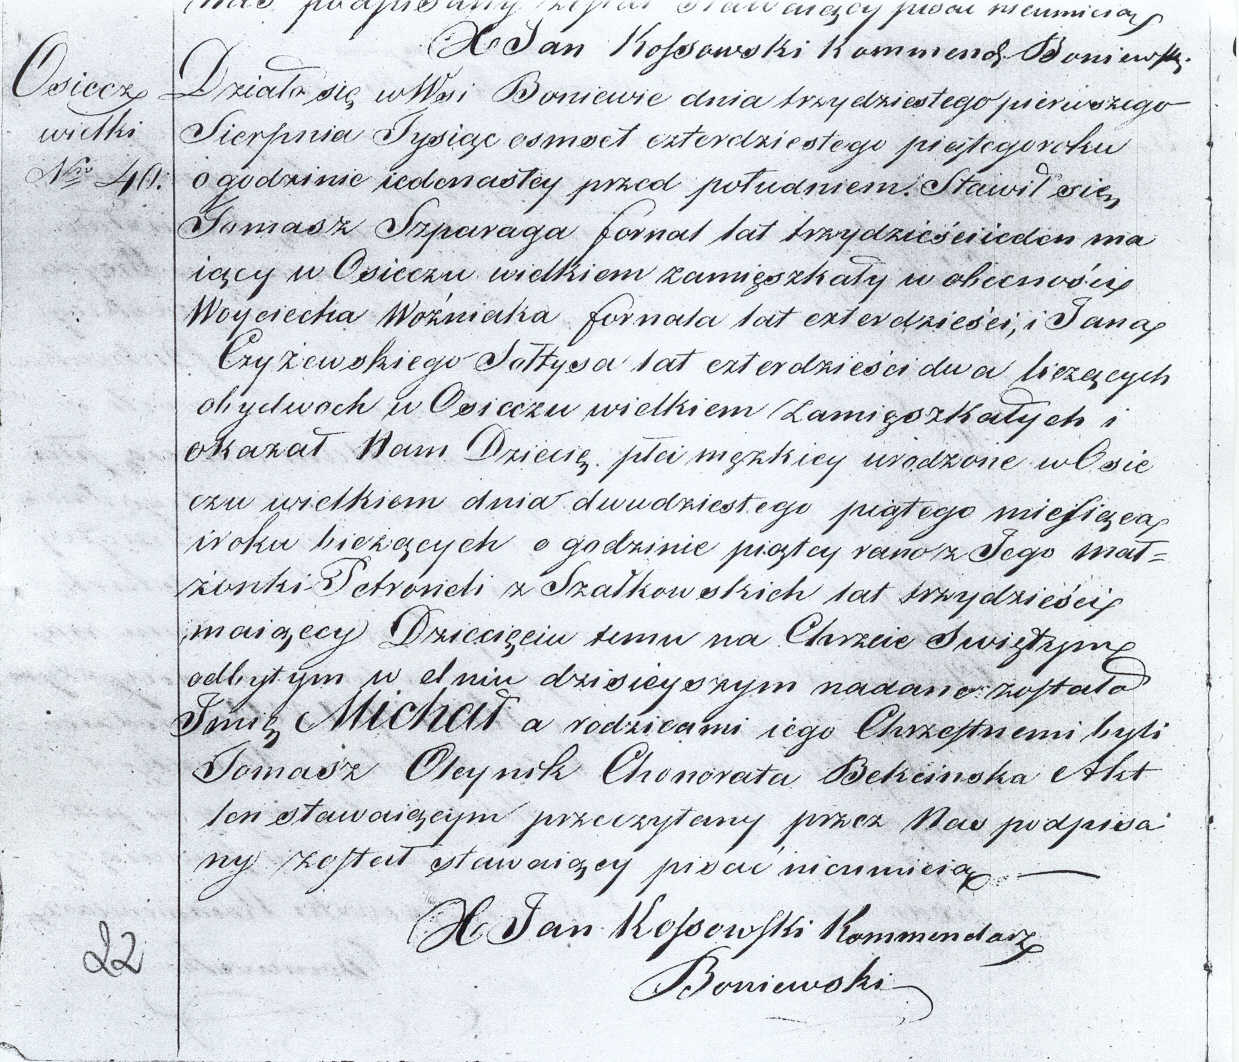 podpisany został stawaiący pisać nieumieią
X Jan Kossowski Kommend. Boniewski.
Osiecz
wielki
Nro 40.
Działo się w Wsi Boniewie dnia trzydziestego pierwszego
Sierpnia Tysiąc osmset czterdziestego piątego roku
o godzinie iedenastey przed południem. Stawił się
Tomasz Szparaga fornal lat trzydzieści ieden ma
iący w Osieczu wielkiem zamięszkały w obecności
Woyciecha Woźniaka fornala lat czterdzieści, i Jana
Czyżewskiego Sołtysa lat czterdzieści dwa liczących
obydwoch w Osieczu wielkiem zamięszkałych i
okazał Nam Dziecię płci męzkiey urodzone w Osie
czu wielkiem dnia dwudziestego piątego miesiąca
i roku bieżących o godzinie piątey rano z Jego mał=
żonki Petroneli z Szałkowskich lat trzydzieści
maiącey Dziecięciu temu na Chrzcie Swiętym
odbytym w dniu dzisieyszym nadano zostało
Imię Michał a rodzicami iego Chrzestnemi byli
Tomasz Oleynik Chonorata Bekcinska Akt
ten stawaiącym przeczytany przez Nas podpisa
ny został stawaiący pisać nieumieią
X Jan Kossowski Kommendarz
Boniewski
22